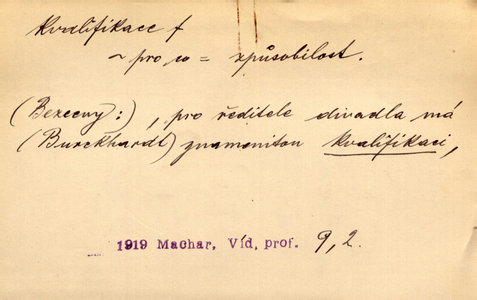 kvalifikace f
~ pro co = způsobilost.
(Bezecny:) , pro ředitele divadla má
(Burckhardt) znamenitou kvalifikaci,
1919 Machar, Víd. prof. 9,2.